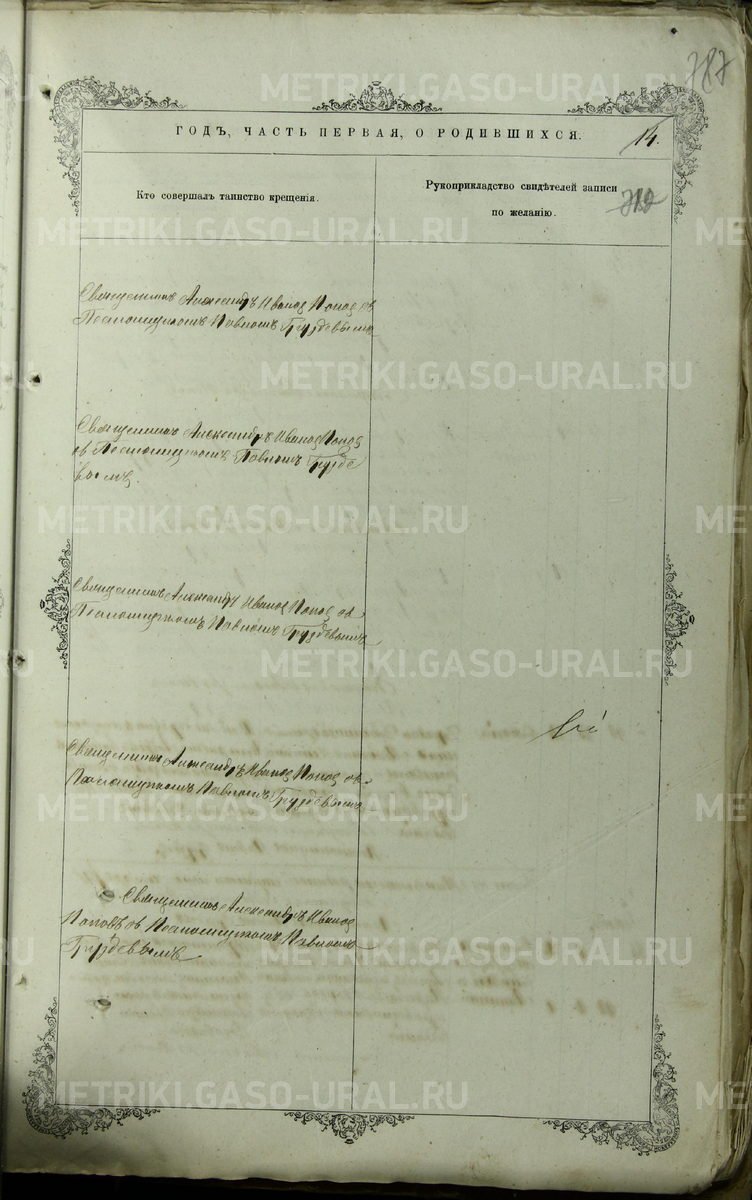 787
ГОДЪ, ЧАСТЬ ПЕРВАЯ, О РОДИВШИХСЯ.
14.
Кто совершалъ таинство крещенія.
Рукоприкладство свидѣтелей записи
по желанію.
Священникъ Александръ Иванов Попов съ
Псаломщикомъ Павломъ Груздевымъ
Священникъ Александръ Иванов Попов
съ Псаломщикомъ Павломъ Грузде
вымъ.
Священникъ Александръ Иванов Попов съ
Псаломщикомъ Павломъ Груздевымъ
Священникъ Александръ Иванов Попов съ
Псаломщикомъ Павломъ Груздевымъ
Священникъ Александръ Иванов
Поповъ съ Псаломщикомъ Павломъ
Груздевымъ
METRIKI.GASO-URAL.RU